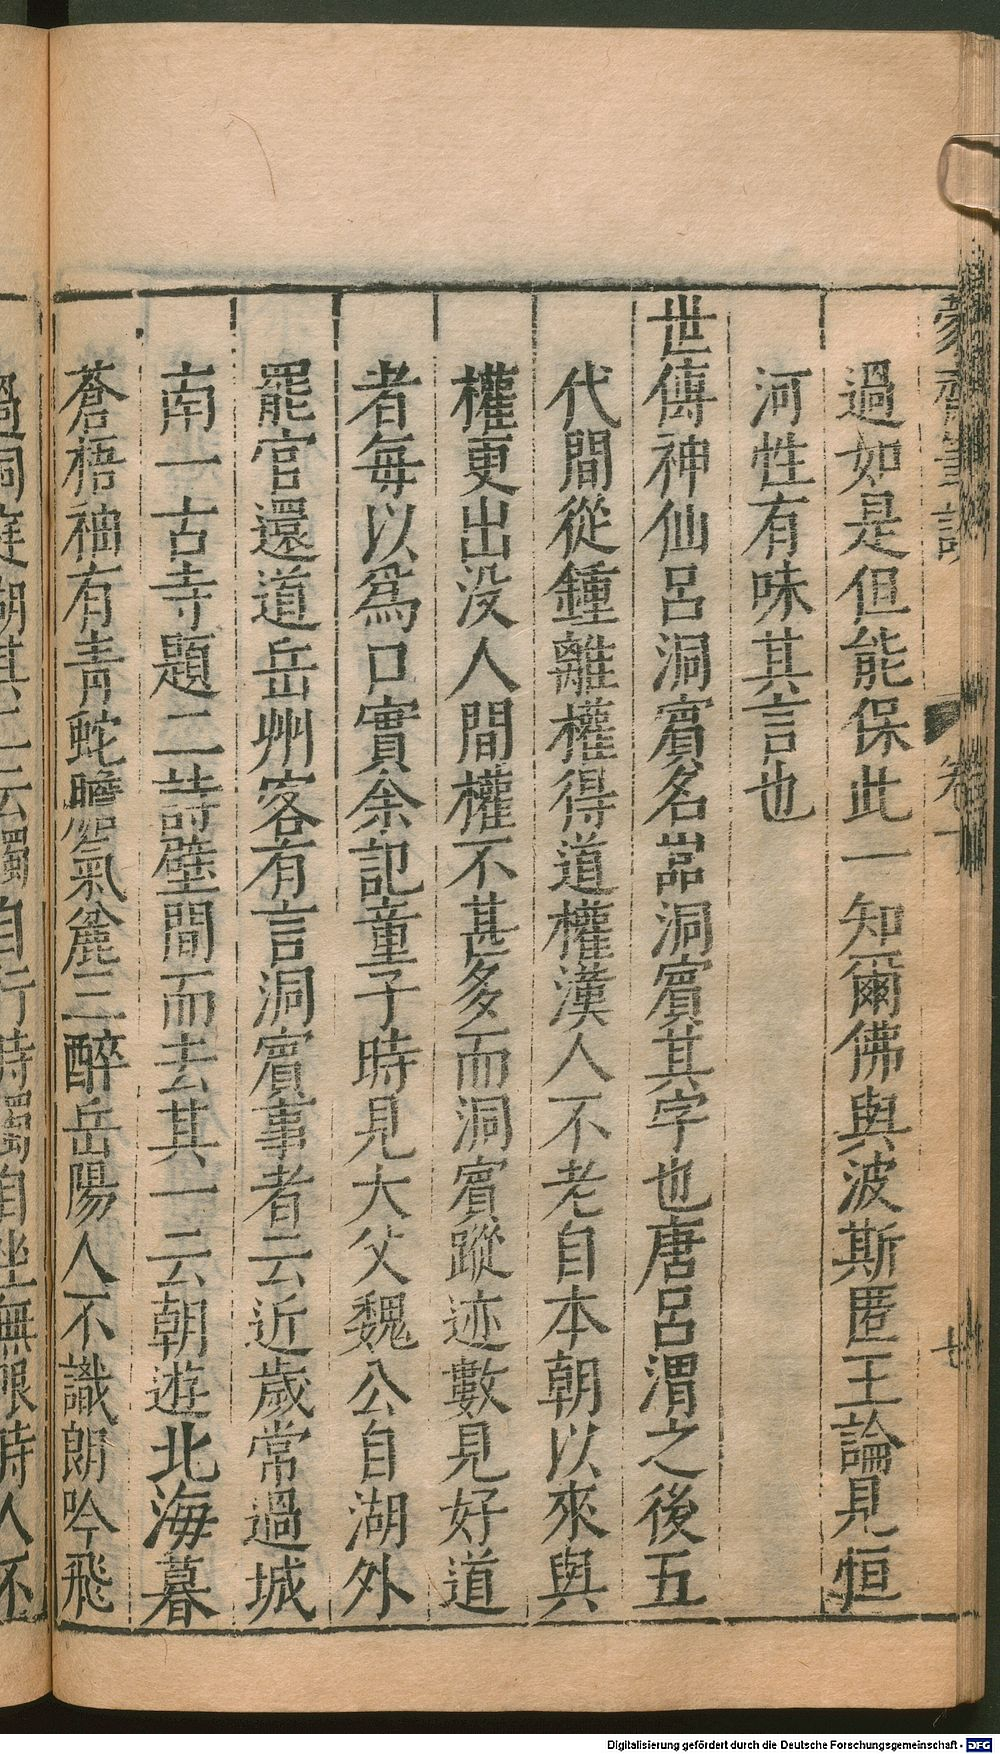 蒙齋筆談 卷一 七
過如是但能保此一知爾佛與波斯匿王論見恒
河性有味其言也
世傳神仙呂洞賓名嵓洞賓其字也唐呂渭之後五
代間從鍾離權得道權漢人不老自本朝以來與
權更出没人間權不甚多而洞賓蹤迹數見好道
者每以爲口實余記童子時見大父魏公自湖外
罷官還道岳州客有言洞賓事者云近歲常過城
南一古寺題二詩壁間而去其一云朝遊北海暮
蒼梧䄂有青蛇膽氣麄三醉岳陽人不識朗吟飛
過洞庭湖其二云獨自行時獨自坐無限時人不
Digitalisierung gefördert durch die Deutsche Forschungsgemeinschaft - DFG